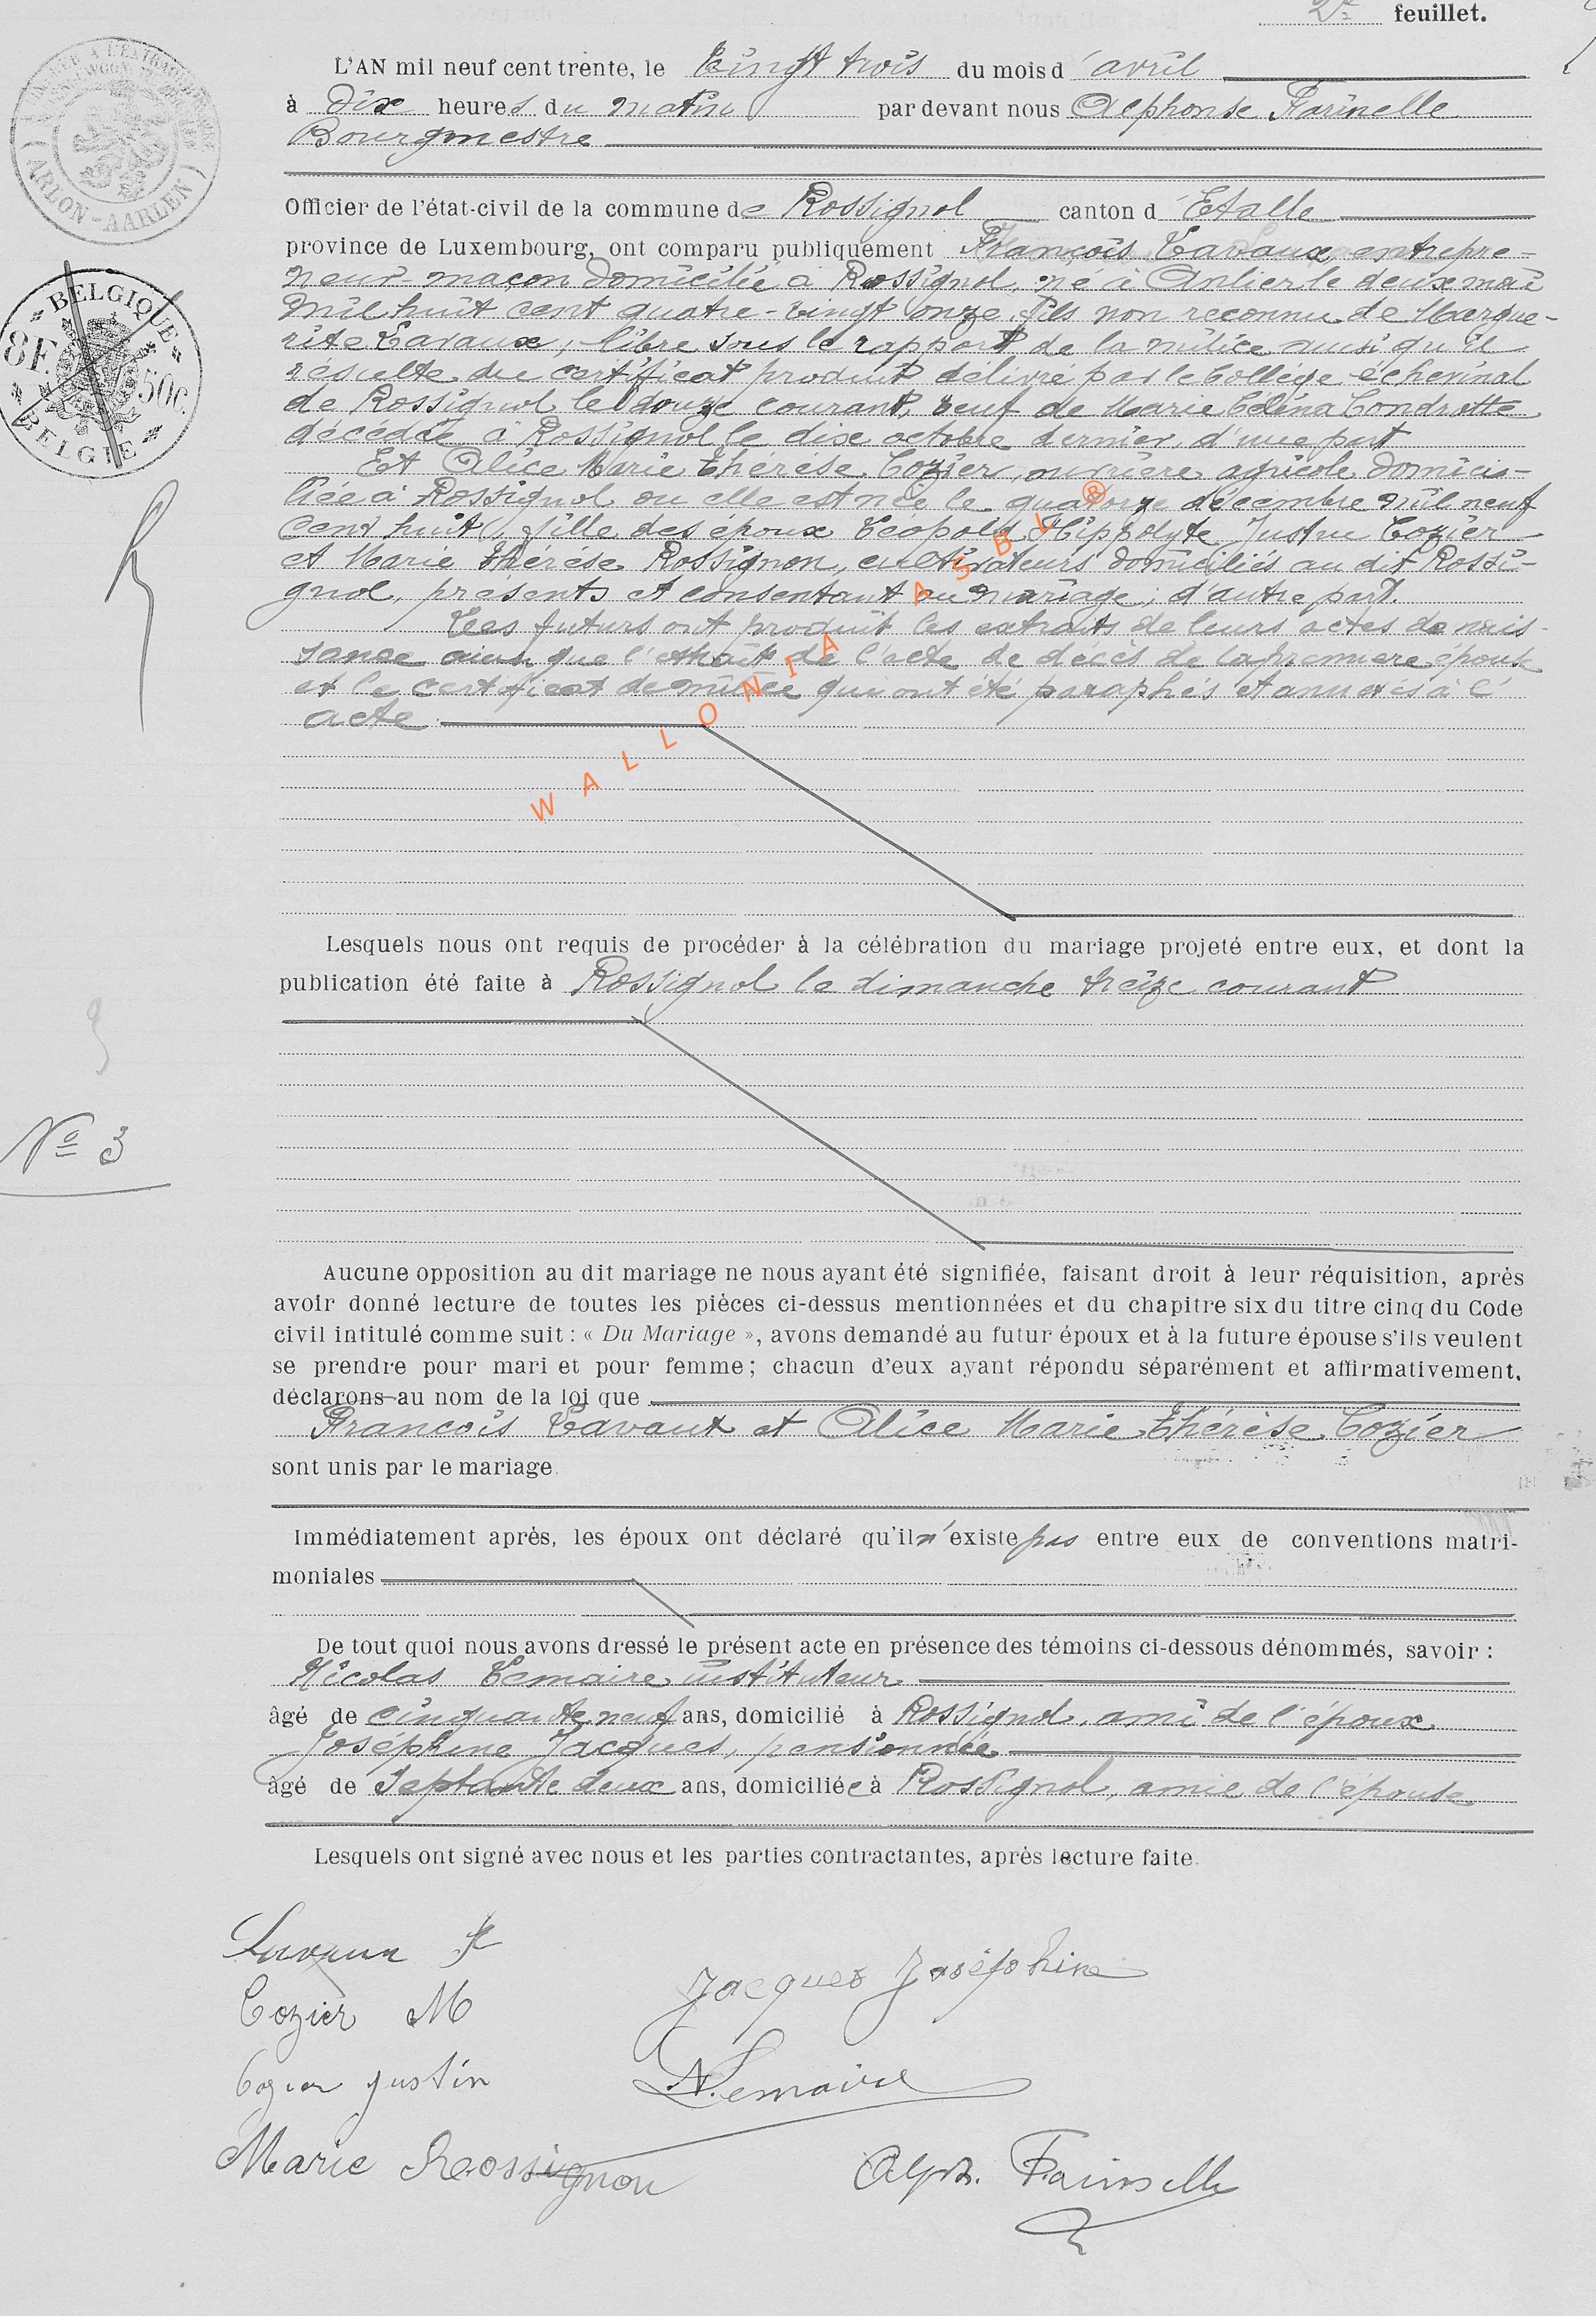 2e feuillet.
L'AN mil neuf cent trente, le Vingt trois du mois d'avril
à dix heures du matin par devant nous Alphonse Farinelle
Bourgmestre
Officier de l'état-civil de la commune de Rossignol canton d'Etalle
province de Luxembourg, ont comparu publiquement François Lavaux, entrepre-
neur-maçon domicilié à Rossignol, né à Anlier le deux mai
mil huit cent quatre-vingt onze fils non reconnu de Margue-
rite Lavaux, libre sous le rapport de la milice ainsi qu'il
résulte du certificat produit délivré par le Collège échevinal
de Rossignol le douze courant, veuf de Marie Célina Condrotte
décédée à Rossignol le dix octobre dernier, d'une part
Et Alice Marie Thérèse Cozier, ouvrière agricole domici-
liée à Rossignol ou elle est née le quatorze décembre mil neuf
cent huit, fille des époux Léopold Hippolyte Justin Cozier
et Marie Thérèse Rossignon, cultivateurs domiciliés au dit Rossi-
gnol, présents et consentant au mariage, d'autre part.
Les futurs ont produit les extraits de leurs actes de nais-
sance ainsi que l'extrait de l'acte de décès de la première épouse
et le certificat de milice qui ont été paraphés et annexés à l'
acte
WALLONIA ASBL ®
Lesquels nous ont requis de procéder à la célébration du mariage projeté entre eux, et dont la
publication été faite à Rossignol le dimanche treize courant
Nº 3
Aucune opposition au dit mariage ne nous ayant été signifiée, faisant droit à leur réquisition, après
avoir donné lecture de toutes les pièces ci-dessus mentionnées et du chapitre six du titre cinq du Code
civil intitulé comme suit : « Du Mariage », avons demandé au futur époux et à la future épouse s'ils veulent
se prendre pour mari et pour femme; chacun d'eux ayant répondu séparément et affirmativement,
déclarons au nom de la loi que
François Lavaux et Alice Marie Thérèse Cozier
sont unis par le mariage.
Immédiatement après, les époux ont déclaré qu'il n'existe pas entre eux de conventions matri-
moniales
De tout quoi nous avons dressé le présent acte en présence des témoins ci-dessous dénommés, savoir :
Nicolas Lemaire instituteur
âgé de cinquante neuf ans, domicilié à Rossignol, ami de l'époux
Joséphine Jacques, pensionnée
âgé de septante deux ans, domiciliée à Rossignol, amie de l'épouse
Lesquels ont signé avec nous et les parties contractantes, après lecture faite.
Lavaux F
Jacques Joséphine
Cozier M
Cozier Justin
N. Lemaire
Marie Rossignon
Alph. Farinelle
ARLON-AARLEN
BELGIQUE
8F. 50C.
BELGIE